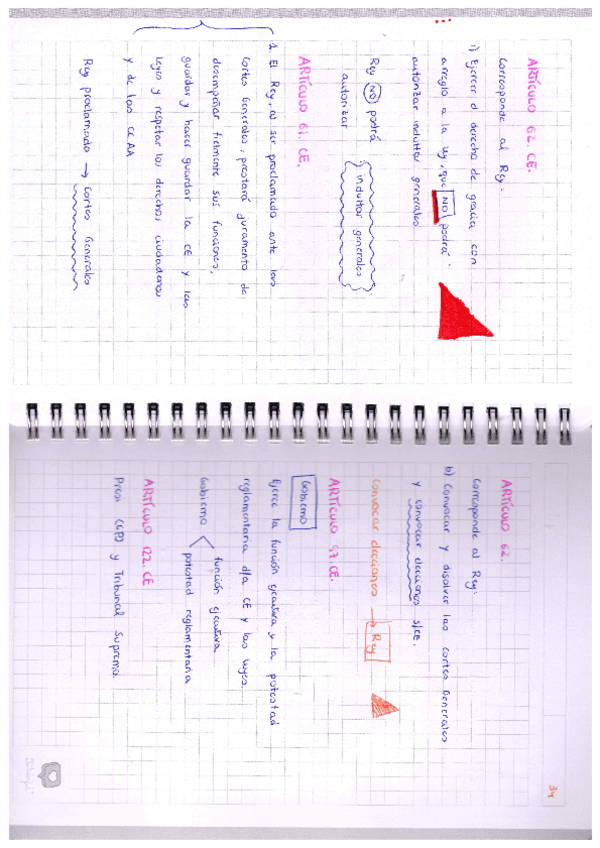 ARTÍCULO 62. CE.
Corresponde al Rey:
i) Ejercer el derecho de gracia con
arreglo a la ley, que NO podrá
autorizar indultos generales
Rey NO podrá
autorizar
indultos generales
ARTÍCULO 61. CE.
1. El Rey, al ser proclamado ante las
Cortes Generales, prestará juramento de
desempeñar fielmente sus funciones,
guardar y hacer guardar la CE y las
leyes y respetar los derechos ciudadanos
y de las CCAA
Rey proclamado → Cortes Generales
34
ARTÍCULO 62.
Corresponde al Rey:
b) Convocar y disolver las Cortes Generales
y convocar elecciones s/CE.
Convocar elecciones → Rey
ARTÍCULO 97. CE.
Gobierno
Ejerce la función ejecutiva y la potestad
reglamentaria d/a CE y las leyes.
Gobierno
función ejecutiva
potestad reglamentaria
ARTÍCULO 122. CE
Presi CGPJ y Tribunal Supremo.